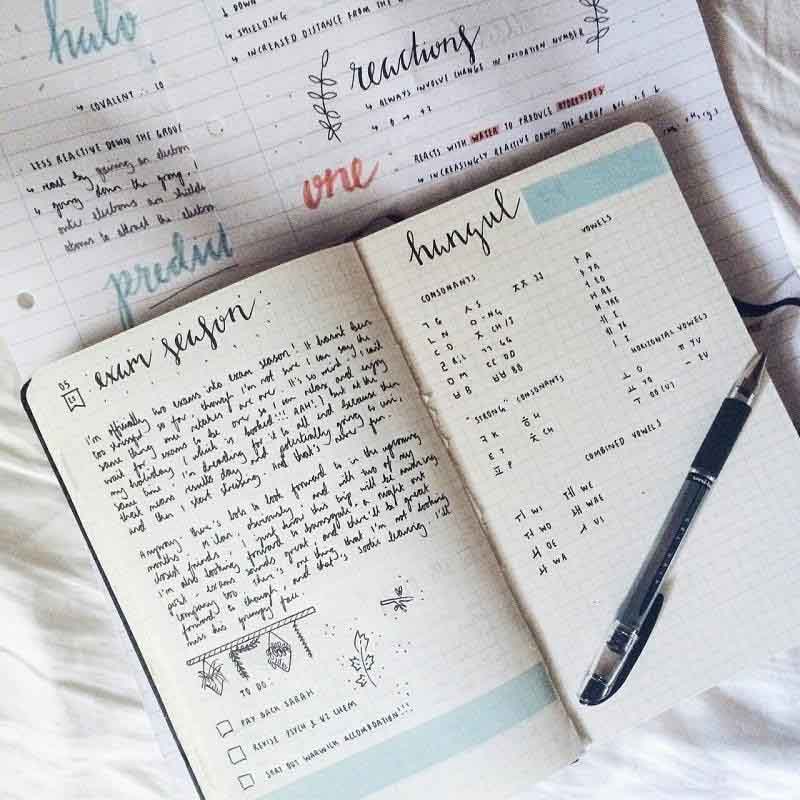 halo
↓ DOWN
↳ SHIELDING
↳ INCREASED DISTANCE FROM THE
↳ COVALENT
reactions
↳ ALWAYS INVOLVE CHANGE IN OXIDATION NUMBER
↳ 0 → +2
LESS REACTIVE DOWN THE GROUP
↳ react by gaining an electron
↳ going down the group,
outer electrons
atoms to attract the electron
one
REACTS WITH WATER TO PRODUCE HYDROXIDES
↳ INCREASINGLY REACTIVE DOWN THE GROUP B/C
predict
exam season
05
I'm officially two exams into exam season! It hasn't been
too stressful so far, though I'm not sure I can say the
same thing once retakes are over. It's so weird - I can't
wait for exams to be over so I can relax and enjoy
my holiday (which is booked!!! AAH!) but at the
same time I'm dreading for it to all end because then
that means results day and potentially going to uni,
and then I start stressing. And that's never fun.
Anyway - there's lots to look forward to in the upcoming
months. Milan, obviously, and with two of my
closest friends. I just know this trip will be amazing.
I'm also looking forward to a night out
post-exams sounds great and there'll be great
company too. There's one thing that I'm not looking
forward to though, and that's Sofie leaving. I'll
miss his grumpy face.
TO DO:
PAY BACK SARAH
REVISE PSYCH & U2 CHEM
SORT OUT WARWICK ACCOMODATION!!!
hangul
CONSONANTS
ㄱ G ㅅ S ㅉ JJ
ㄴ N ㅇ -NG
ㄷ D ㅈ CH/S
ㄹ R/L ㄲ GG
ㅁ M ㄸ DD
ㅂ B ㅃ BB
"STRONG" CONSONANTS
ㅋ K ㅎ H
ㅌ T ㅊ CH
ㅍ P
VOWELS
ㅏ A
ㅑ YA
ㅓ EO
ㅐ AE
ㅒ YAE
ㅔ E
ㅖ YE
ㅣ I
HORIZONTAL VOWELS
ㅗ O ㅠ YU
ㅛ YO ㅡ EU
ㅜ OO (U)
COMBINED VOWELS
ㅟ WI ㅞ WE
ㅝ WO ㅙ WAE
ㅚ OE ㅢ UI
ㅘ WA